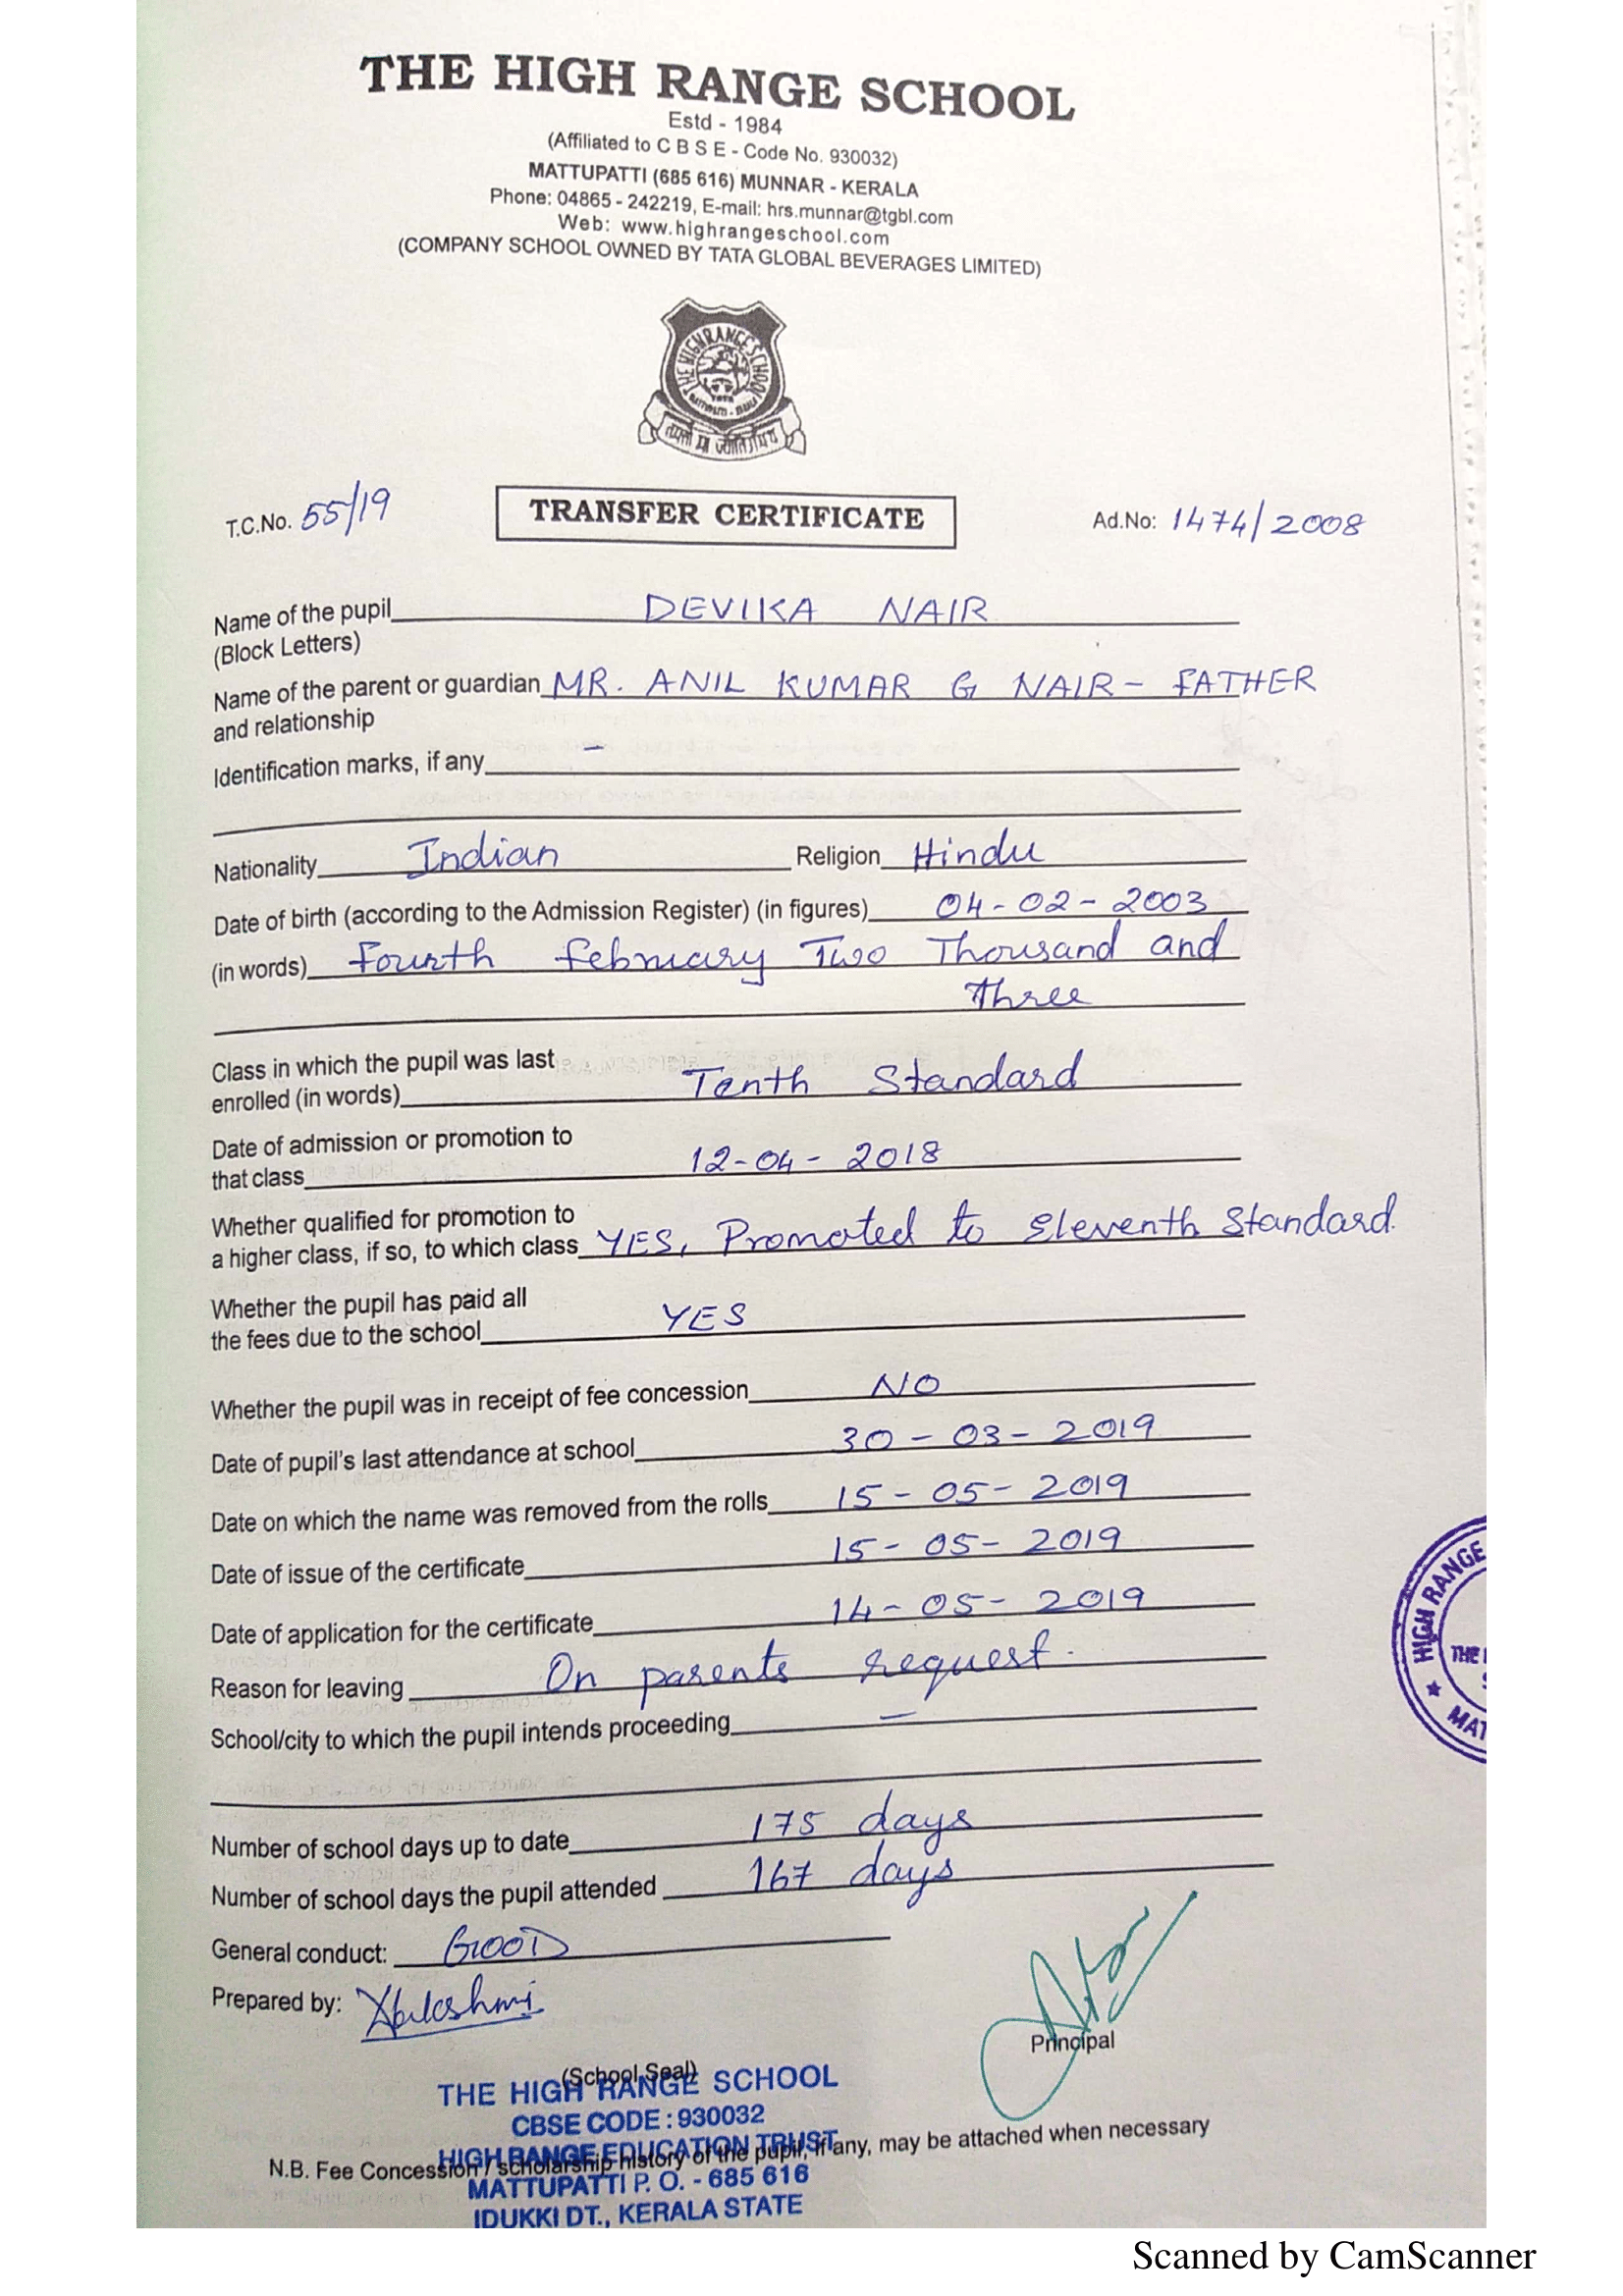 THE HIGH RANGE SCHOOL
Estd - 1984
(Affiliated to C B S E - Code No. 930032)
MATTUPATTI (685 616) MUNNAR - KERALA
Phone: 04865 - 242219, E-mail: hrs.munnar@tgbl.com
Web: www.highrangeschool.com
(COMPANY SCHOOL OWNED BY TATA GLOBAL BEVERAGES LIMITED)
THE HIGH RANGE SCHOOL
TATA
तमसो मा ज्योतिर्गमय
T.C.No. 55/19 TRANSFER CERTIFICATE Ad.No: 1474/2008
Name of the pupil DEVIKA NAIR
(Block Letters)
Name of the parent or guardian MR. ANIL KUMAR G NAIR - FATHER
and relationship
Identification marks, if any -
Nationality Indian Religion Hindu
Date of birth (according to the Admission Register) (in figures) 04-02-2003
(in words) Fourth February Two Thousand and
Three
Class in which the pupil was last
enrolled (in words) Tenth Standard
Date of admission or promotion to
that class 12-04-2018
Whether qualified for promotion to
a higher class, if so, to which class YES, Promoted to Eleventh Standard.
Whether the pupil has paid all
the fees due to the school YES
Whether the pupil was in receipt of fee concession NO
Date of pupil's last attendance at school 30-03-2019
Date on which the name was removed from the rolls 15-05-2019
Date of issue of the certificate 15-05-2019
Date of application for the certificate 14-05-2019
Reason for leaving On parents request.
School/city to which the pupil intends proceeding -
HIGH RANGE
THE
MAT
Number of school days up to date 175 days
Number of school days the pupil attended 167 days
General conduct: GOOD
Prepared by:
Principal
(School Seal)
THE HIGH RANGE SCHOOL
CBSE CODE : 930032
HIGH RANGE EDUCATION TRUST
N.B. Fee Concession / scholarship history of the pupil, if any, may be attached when necessary
MATTUPATTI P. O. - 685 616
IDUKKI DT., KERALA STATE
Scanned by CamScanner